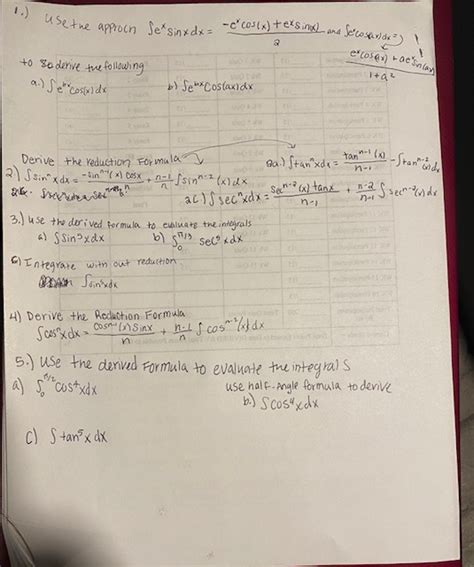 1.) Use the approch ∫eˣ sinx dx = -eˣcos(x) + eˣ sin(x) / 2 and ∫eˣcos(ax)dx =
eˣcos(ax) + aeˣsin(ax) / 1+a²
to so derive the following
a.) cos(x) dx b) cos(ax) dx
Derive the reduction Formula
2) ∫sinⁿxdx = -sinⁿ⁻¹(x) cosx / n + n-1/n ∫sinⁿ⁻²(x) dx
2a.) ∫tanⁿxdx = tanⁿ⁻¹(x) / n-1 - ∫tanⁿ⁻²(x) dx
2c) ∫secⁿxdx = secⁿ⁻²(x) tanx / n-1 + n-2/n-1 ∫secⁿ⁻²(x) dx
3.) Use the derived formula to evaluate the integrals
a) b)
c) Integrate with out reduction
4) Derive the Reduction Formula
∫cosⁿxdx = cosⁿ⁻¹(x) sinx / n + n-1/n ∫cosⁿ⁻²(x) dx
5.) Use the derived Formula to evaluate the integrals
a) ∫₀^π/2 cos⁴xdx
use half-Angle formula to derive
b.) ∫cos⁴xdx
c) ∫tan⁵xdx